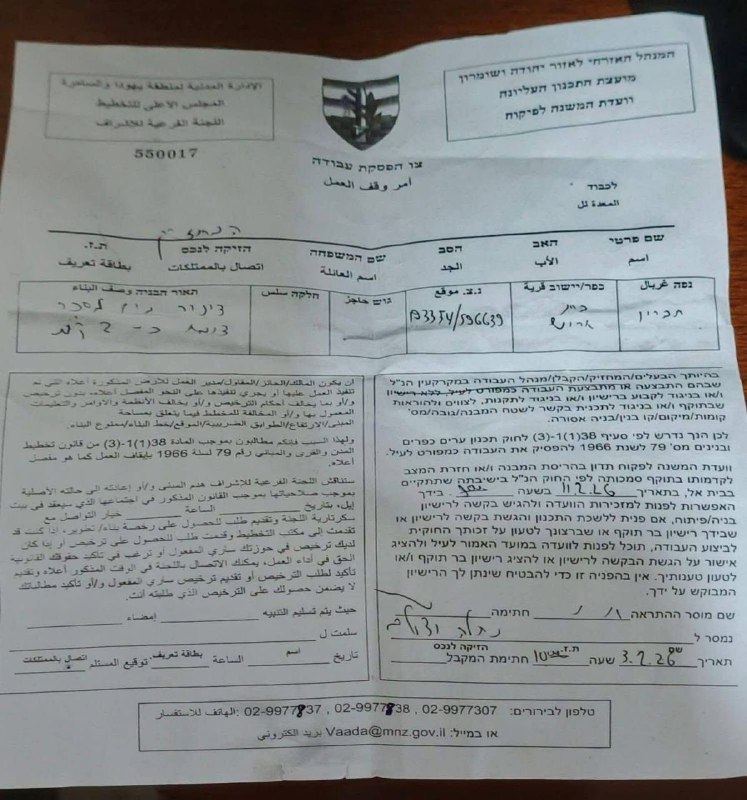 המנהל האזרחי לאזור יהודה ושומרון
מועצת התכנון העליונה
וועדת המשנה לפיקוח
الإدارة المدنية لمنطقة يهودا والسامرة
المجلس الأعلى للتخطيط
اللجنة الفرعية للإشراف
550017
צו הפסקת עבודה
أمر وقف العمل
לכבוד
שם פרטי האב הסב שם המשפחה הזיקה לנכס ת.ז.
اسم الأب الجد اسم العائلة اتصال بالممتلكات بطاقة تعريف
נפה كפר/יישוב قرية נ.צ. موقع גוש حاجز חלקה תאור הבניה وصف البناء
חברון
בית
933354/596639
בהיותך הבעלים/המחזיק/הקבלן/מנהל העבודה במקרקעין הנ"ל
שבהם התבצעה או מתבצעת העבודה כמפורט לעיל, ללא רישיון
ו/או בניגוד לקבוע ברישיון ו/או בניגוד לתקנות, לצווים ולהוראות
שבתוקף ו/או בניגוד לתכנית בקשר לשטח המבנה/גובה/מס'
קומות/מיקום/קו בנין/בניה אסורה.
לכן הנך נדרש לפי סעיף 38(1)(1-3) לחוק תכנון ערים כפרים
ובנינים מס' 79 לשנת 1966 להפסיק את העבודה כמפורט לעיל.
וועדת המשנה לפקוח תדון בהריסת המבנה ו/או חזרת המצב
לקדמותו בתוקף סמכותה לפי החוק הנ"ל בישיבתה שתתקיים
בבית אל, בתאריך 11.2.26 בשעה בידך
האפשרות לפנות למזכירות הוועדה ולהגיש בקשה לרישיון
בניה/פיתוח, אם פנית ללשכת התכנון והגשת בקשה לרישיון או
שבידך רישיון בר תוקף או שברצונך לטעון על זכותך החוקית
לביצוע העבודה, תוכל לפנות לוועדה במועד האמור לעיל ולהציג
אישור על הגשת הבקשה לרישיון או להציג רישיון בר תוקף ו/או
לטעון טענותיך. אין בהפניה זו כדי להבטיח שינתן לך הרישיון
המבוקש על ידך.
שם מוסר ההתראה חתימה
נמסר ל
שם ת.ז. הזיקה לנכס
תאריך 3.2.26 שעה חתימת המקבל
أن يكون المالك/الحائز/المقاول/مدير العمل للأرض المذكورة أعلاه التي تم
تنفيذ العمل عليها أو يجري تنفيذها على النحو المفصل أعلاه، بدون ترخيص
و/أو بخلاف أحكام الترخيص و/أو بخلاف الأنظمة والأوامر والتعليمات
المعمول بها و/أو المخالفة للمخطط فيما يتعلق بمساحة
المبنى/الارتفاع/الطوابق/الموقع/خط البناء/ممنوع البناء.
ولهذا السبب فإنكم مطالبون بموجب المادة 38(1)(1-3) من قانون تخطيط
المدن والقرى والمباني رقم 79 لسنة 1966 بإيقاف العمل كما هو مفصل
أعلاه.
ستناقش اللجنة الفرعية للإشراف هدم المبنى و/أو إعادته إلى حالته الأصلية
بموجب صلاحياتها بموجب القانون المذكور في اجتماعها الذي سيعقد في بيت
إيل، بتاريخ الساعة خيار التواصل مع
سكرتارية اللجنة وتقديم طلب للحصول على رخصة بناء/تطوير، إذا كنت قد
تقدمت إلى مكتب التخطيط وقدمت طلب للحصول على ترخيص أو إذا كان
لديك ترخيص في حوزتك ساري المفعول أو ترغب في تأكيد حقوقك القانونية
الحق في أداء العمل، يمكنك الاتصال باللجنة في الوقت المذكور أعلاه وتقديم
تأكيد لطلب الترخيص أو تقديم ترخيص ساري المفعول و/أو تأكيد مطالباتك
لا يضمن حصولك على الترخيص الذي طلبته أنت.
حيث يتم تسليم التنبيه إمضاء
سلمت ل
اسم بطاقة تعريف اتصال بالممتلكات
تاريخ الساعة توقيع المستلم
טלפון לבירורים: 02-9977307 , 02-9977838 , 02-9977837 :الهاتف للاستفسار
או במייל: Vaada@mnz.gov.il بريد الكتروني